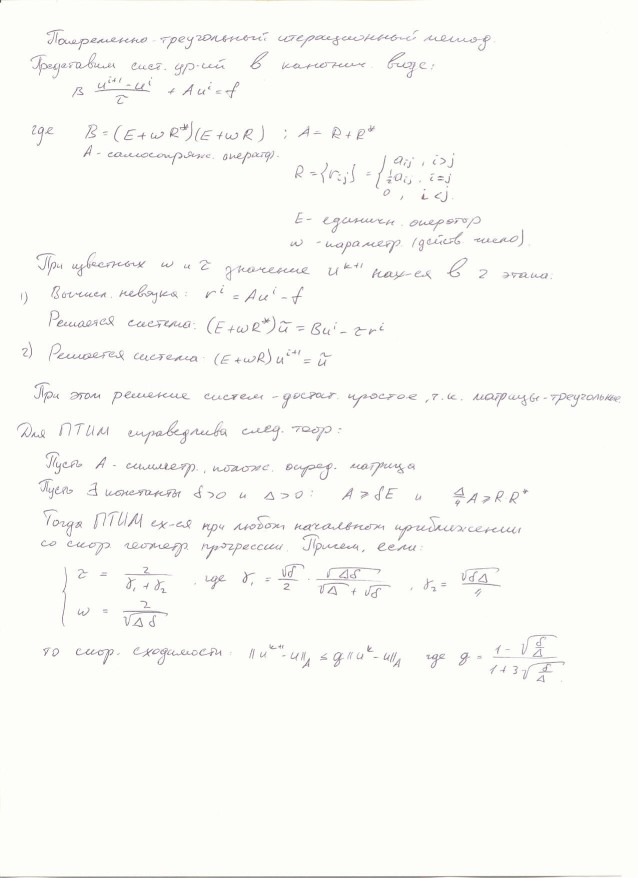 Попеременно-треугольный итерационный метод.
Представим сист. ур-ий в канонич. виде:
B (u^{i+1} - u^i)/τ + Au^i = f
где B = (E + ωR*)(E + ωR) ; A = R + R*
A - самосопряж. оператор.
R = {r_{ij}} = { a_{ij}, i>j
½a_{ij}, i=j
0, i<j.
E - единичн. оператор
ω - параметр (действ. число).
При известных ω и τ значение u^{k+1} нах-ся в 2 этапа:
1) Вычисл. невязка: r^i = Au^i - f
Решается система: (E + ωR*)ũ = Bu^i - τr^i
2) Решается система: (E + ωR)u^{i+1} = ũ
При этом решение систем - достат. простое, т.к. матрицы - треугольные
Для ПТИМ справедлива след. теор:
Пусть A - симметр., полож. опред. матрица
Пусть ∃ константы δ>0 и Δ>0: A ≥ δE и Δ/4 A ≥ R R*
Тогда ПТИМ сх-ся при любом начальном приближении
со скор. геометр. прогрессии. Причем, если:
{ τ = 2/(γ₁ + γ₂), где γ₁ = √δ/2 · √Δδ/(√Δ + √δ), γ₂ = √δΔ/4
ω = 2/√Δδ
то скор. сходимости: ||u^{k+1} - u||_A ≤ q||u^k - u||_A где q = (1 - √(δ/Δ))/(1 + 3√(δ/Δ)).